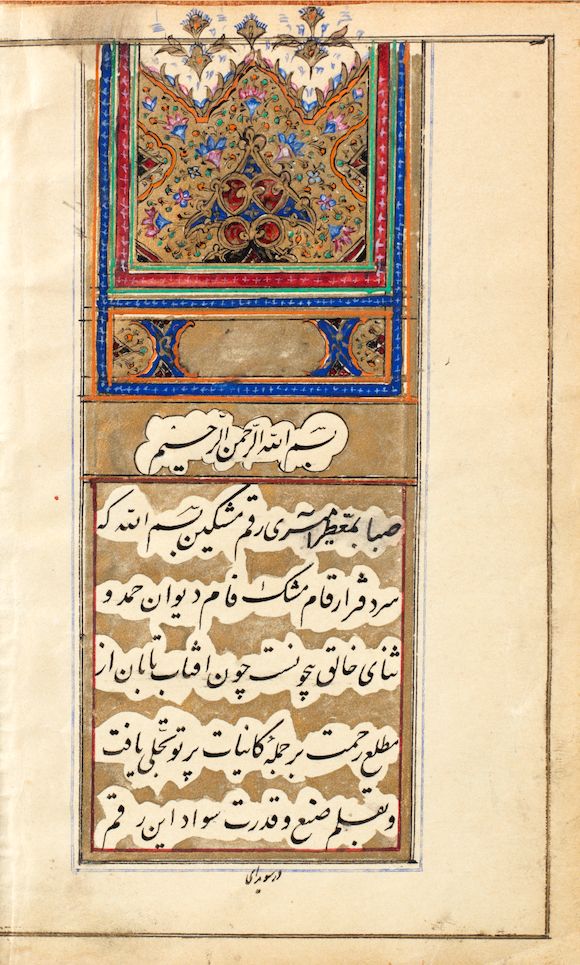 بسم الله الرّحمن الرّحیم
صبا رقم مشکین بسم الله که
سردفتر ارقام مشک فام دیوان حمد و
ثنای خالق بیچونست چون افتاب تابان از
مطلع رحمت بر جملهٔ کاینات پرتو تجلّی یافت
و بقلم صنع و قدرت سواد این رقم
در سویدای